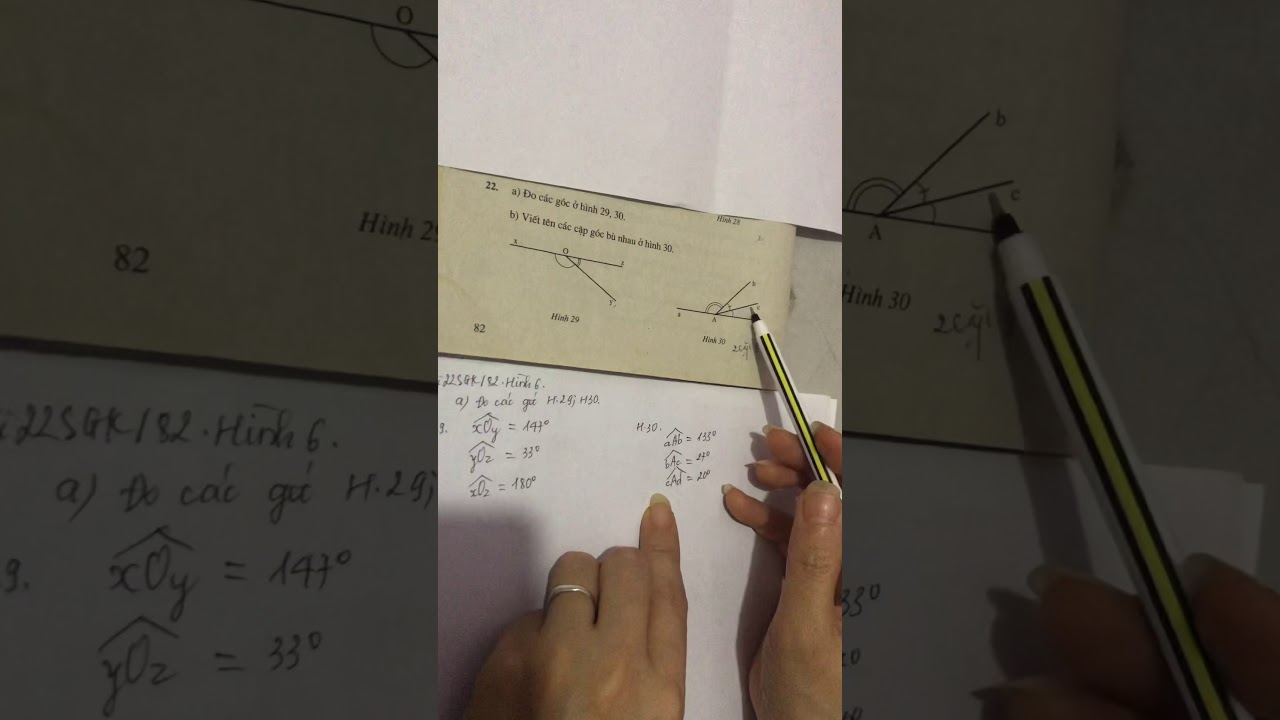 22. a) Đo các góc ở hình 29, 30.
b) Viết tên các cặp góc bù nhau ở hình 30.
Hình 28
x O z
y
Hình 29
b
c
a A
Hình 30
82
22SGK/82. Hình 6.
a) Đo các gó H.29; H30.
xOy = 147°
yOz = 33°
xOz = 180°
H.30.
aAb = 133°
bAc = 27°
cAd = 20°